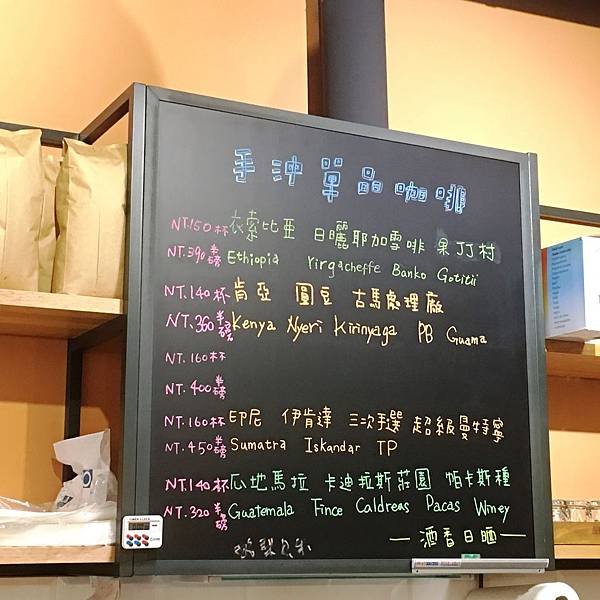 手沖單品咖啡
NT.150杯 衣索比亞 日曬耶加雪啡 果丁丁村
NT.390半磅 Ethiopia Yirgacheffe Banko Gotitii
NT.140杯 肯亞 圓豆 古馬處理廠
NT.360半磅 Kenya Nyeri Kirinyaga PB Guama
NT.160杯
NT.400半磅
NT.160杯 印尼 伊肯達 三次手選 超級曼特寧
NT.450半磅 Sumatra Iskandar TP
NT.140杯 瓜地馬拉 卡迪拉斯莊園 帕卡斯種
NT.320半磅 Guatemala Fince Caldreas Pacas Winey
— 酒香日曬 —